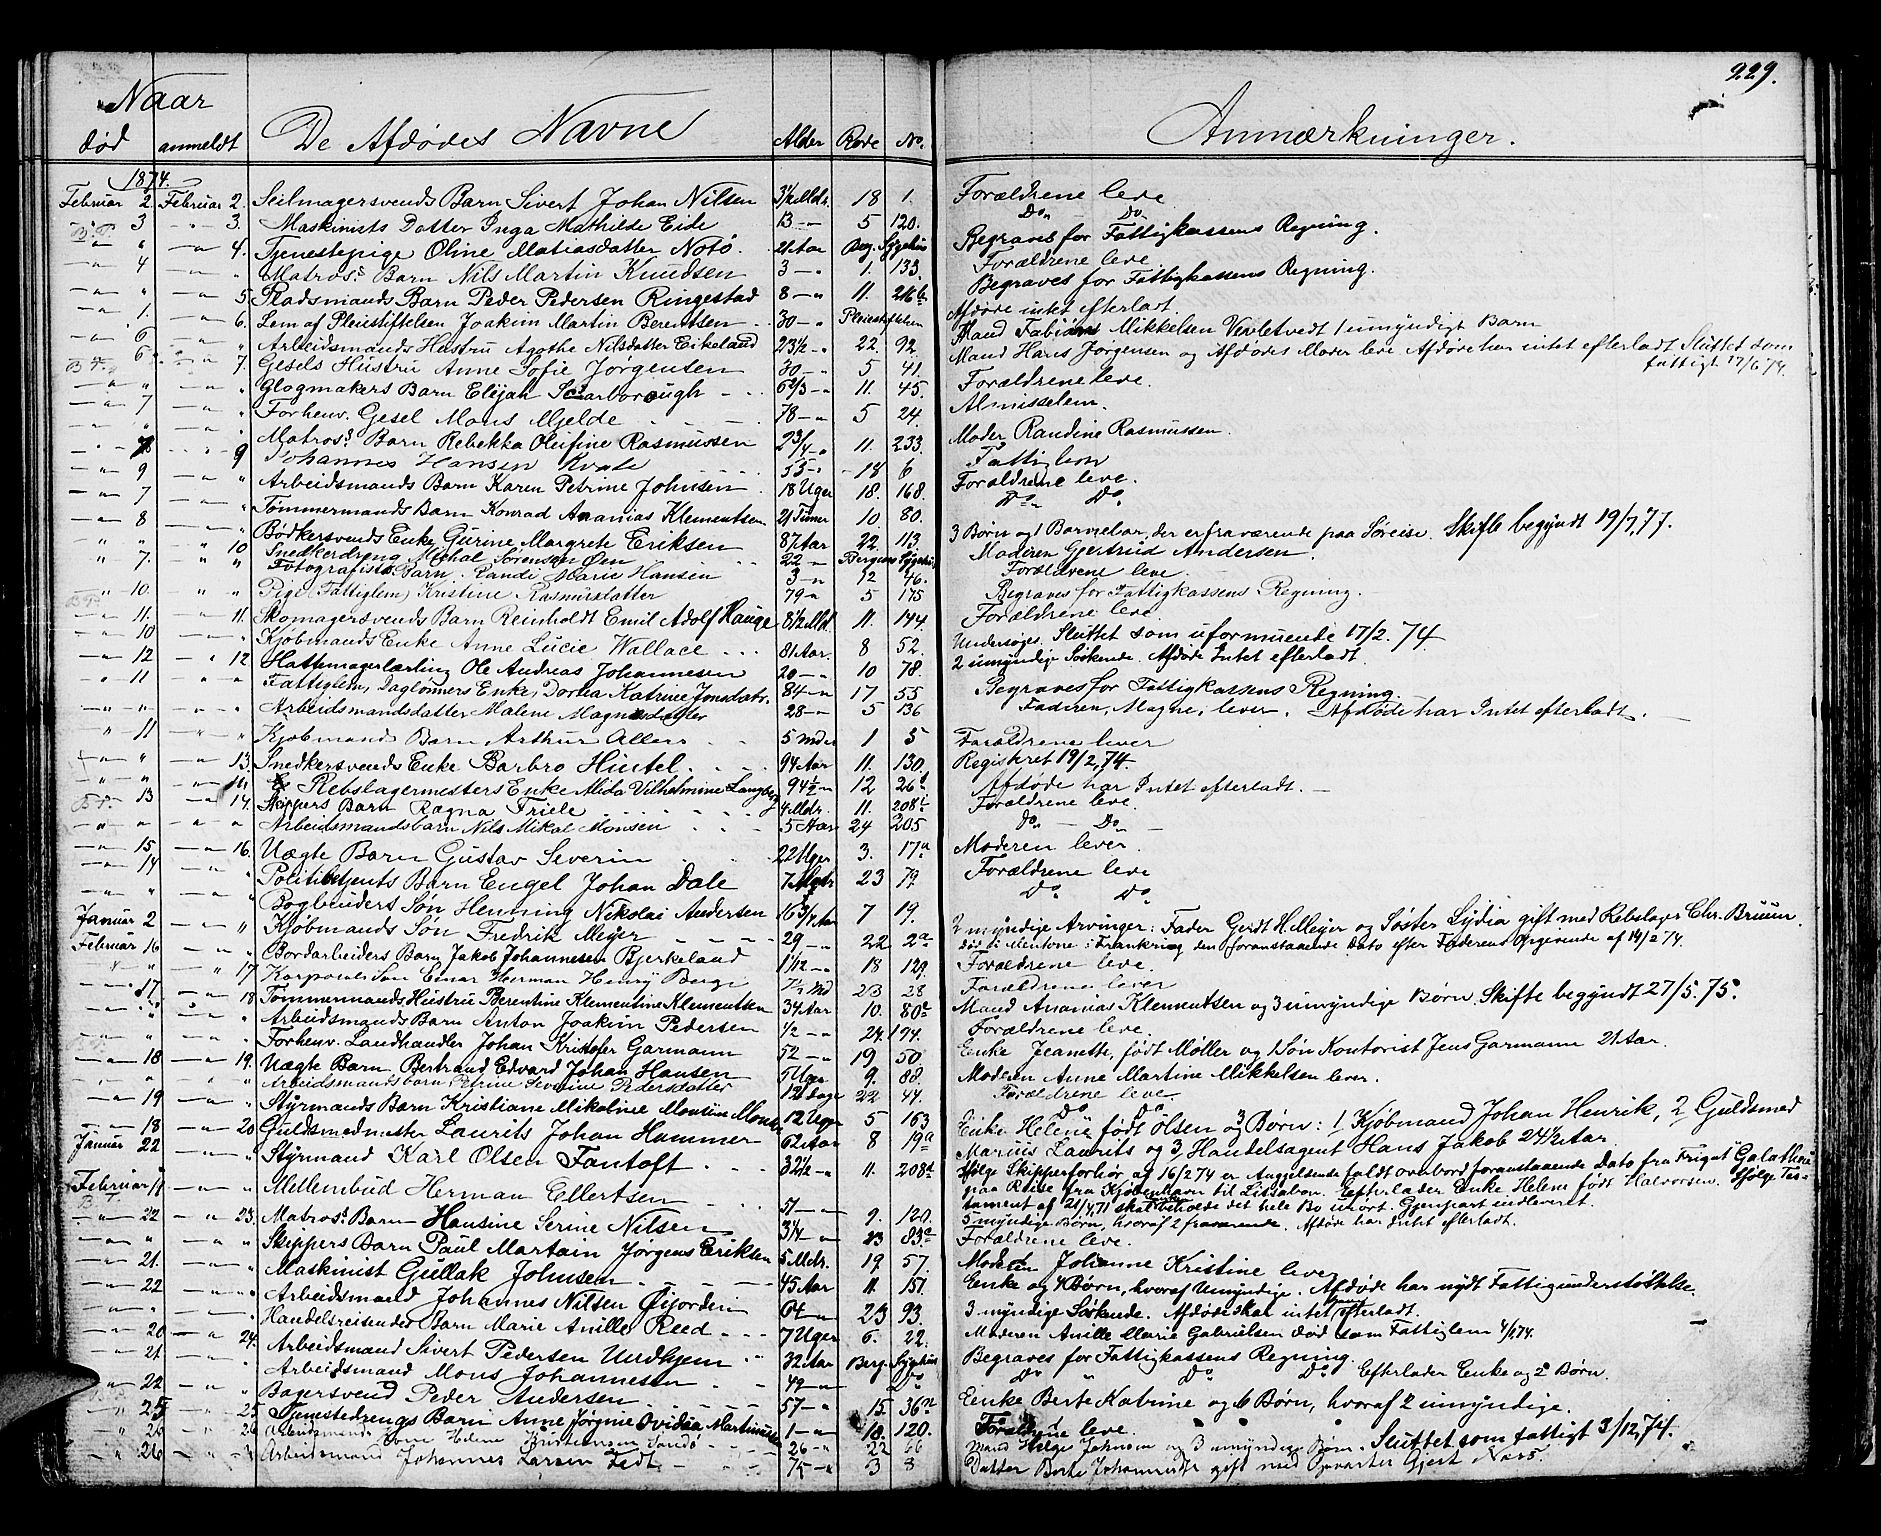 229.
Naar
død anmeldt De Afdødes Navne Alder Rode No. Anmærkninger.
1874.
Februar 2 Februar 2. Seilmagersvends Barn Sivert Johan Nilsen 3½ Mdr. 18 1. Forældrene leve
" 3 " 3. Maskinists Datter Inga Mathilde Eide 13 " 5 120. Do Do
" " " 4. Tjenestepige Oline Matiasdatter Notö 21 Aar Berg. Sygehus Begraves for Fattigkassens Regning.
" 4 " " Matros's Barn Nils Martin Knudsen 3 " 1. 133. Forældrene leve
" " " 5 Pladsmands Barn Peder Pedersen Ringestad 8 " 11. 216 b Begraves for Fattigkassens Regning.
" 1. " 6. Lem af Pleiestiftelsen Joakim Martin Berentsen 30 " Pleiestiftelsen Afdøde intet efterladt.
" 6 " " Arbeidsmands Hustru Agathe Nilsdatter Eikeland 23½ " 22. 92. Mand Fabian Mikkelsen 1 umyndigt Barn
" 6 " 7. Gesels Hustru Anne Sofie Jørgensen 30 " 5 41. Mand Hans Jørgensen og Afdødes Moder leve. Afdøde har intet efterladt Sluttet som
fattigt 17/6 74.
" " " " Glogmakers Barn Elijah Scarborough 6 2/3 " 11. 45. Forældrene leve.
" 7 " " Forhenv. Gesel Mons Mjelde 78 " 5 24. Almisselem.
" " " " Matros's Barn Rebekka Olufine Rasmussen 2 3/4 " 11. 233. Moder Randine Rasmussen.
" 8 " 9 Johannes Hansen Kvale 53 " 18 6 Fattiglem
" 9 " " Arbeidsmands Barn Karen Petrine Johnsen 18 Uger 18. 168. Forældrene leve.
" 7 " " Tømmermands Barn Konrad Ananias Klementsen 21 Timer 10. 80. Do Do
" 8 " " Bødkersvends Enke Gurine Margreth Eriksen 87 Aar 22. 113 3 Børn og 1 Barnebarn, der er fraværende paa Søreise. Skifte begyndt 19/7,77.
" 7. " 10 Snedkerdreng Michal Sørensen Øen 22 " Bergens Sygehus Moderen Gjertrud Andersen
" " " " Fotografists Barn Randi Marie Hansen 3 " 12 46. Forældrene leve.
" 10. " " Pige (Fattiglem) Kristine Rasmusdatter 79 " 5 175 Begraves for Fattigkassens Regning.
" 11. " 11. Skomagersvends Barn Reinholdt Emil Adolf Hauge 8½ Md. 11. 144. Forældrene leve.
" 10 " " Kjøbmands Enke Anne Lucie Wallace 81 Aar. 8 52. Undersøges. Sluttet som uformuende 17/2. 74.
" 12 " 12. Hattemagerlærling Ole Andreas Johannesen 20 " 10 78. 2 umyndige Søskende. Afdøde Intet efterladt.
" 11 " " Fattiglem, Dagløñners Enke, Dortea Katrine Jonsdatr. 84 " 17 55 Begraves for Fattigkassens Regning.
" " " " Arbeidsmandsdatter Malene Magnesdatter 28 " 5 136 Faderen, Magne, lever. Afdøde har Intet efterladt.
" 11 " " Kjøbmands Barn Arthur Allers 5 Mdr 1 5 Forældrene lever
" " " 13. Snedkersvends Enke Barbro Hintel. 94 Aar 11. 130. Registreret 19/2, 74.
" " " 14. Rebslagermesters Enke Alida Vilhelmine Langberg 94½ " 12 26 d Afdøde har Intet efterladt.
" 13 " 14. Skippers Barn Ragna Friele 4 Mdr. 11. 208 Forældrene leve.
" " " " Arbeidsmandsbarn Nils Mikal Monsen 5 Aar 24 205 Do Do
" 15 " 16. Uægte Barn Gustav Severin 22 Uger 3. 17 a Moderen lever.
" 14 " " Politibetjents Barn Engel Johan Dale 7 23 79. Forældrene leve
" " " " Bogbinders Søn Henning Nikolai Andersen 16 3/4 Aar 7 19. Do Do
Januar 2 " " Kjøbmands Søn Fredrik Meyer 29 " 22 2 a 2 myndige Arvinger: Fader Gerdt H. Meyer og Søster Lydia gift med Rebslager Chr. Bruun.
død i Mentone i Frankrig den foranstaaende Dato efter Faderens Opgivende af 14/2 74.
Februar 16 " " Bordarbeiders Barn Jakob Johannesen Bjerkeland 1 1/12 " 18 129. Forældrene leve.
" " " 17 Korporals Søn Einar Herman Henry Berge 7½ Md 23 28 Forældrene lever
" 17 " 18 Tømmermands Hustru Berentine Klementine Klementsen 34 Aar 10. 80 Mand Ananias Klementsen og 3 umyndige Børn. Skifte begyndt 27/5. 75.
" " " " Arbeidsmands Barn Anton Joakim Pedersen ½ " 24. 194. Forældrene leve.
" " " " Forhenv. Landhandler Johan Kristofer Garmann 52 " 19 50 Enke Jeanette, født Møller og 1 Søn Kontorist Jens Garmann 21 Aar.
" 18 " 19. Uægte Barn Bertrand Edvard Johan Hansen 5 Uger 9. 88. Moderen Anne Martine Mikkelsen lever.
" " " " Arbeidsmandsbarn Petrine Severine Pedersdatter 12 Dage 22 44. Forældrene leve
" 19 " " Styrmands Barn Kristiane Mikaline Montine Monsen 12 Uger 5 163 Do Do
" 18 " 20 Guldsmedmester Laurits Johan Hammer 62 Aar 8 19 a Enke Helene født Olsen og 3 Børn: 1 Kjøbmand Johan Henrik, 2 Guldsmed
Marius Laurits og 3, Handelsagent Hans Jakob 24½ Aar.
Januar 22 " " Styrmand Karl Olsen Fantoft 32½ " 11. 208 d Ifølge Skipperforhør af 16/2 74 er Angjeldende faldt overbord foranstaaende Dato fra Frigat Galathea
paa Reise fra Kjøbenhavn til Lissabon. Efterlader Enke Helene født Halvorsen. Ifølge Tes-
tament af 21/4,71 skal Enken beholde det hele Bo uskift. Gjenpart indleveret.
Februar 11 " " Mellembud Herman Ellertsen 51 " 9. 120. 5 myndige Børn, hvoraf 2 fraværende. Afdøde har Intet efterladt.
" 22 " 23. Matros's Barn Hansine Serine Nilsen 3¼ " 23 83 a Forældrene leve.
" " " " Skippers Barn Paul Martain Jørgens Eriksen 5 Mdr. 19. 57. Moderen Johanne Kristine lever
" 21. " " Maskinist Gullak Johnsen 45 Aar 11. 151. Enke og 4 Børn, hvoraf Umyndige. Afdøde har nydt Fattigunderstøttelse.
" 22 " " Arbeidsmand Johannes Nilsen Øifjorden 64 " 23 93. 3 myndige Søskende. Afdøde skal intet efterladt.
" " " " Handelsreisendes Barn Marie Anille Reed 7 Uger 6. 22. Moderen Anille Marie Gabrielsen død som Fattiglem 4/1 74.
" 20 " 24. Arbeidsmand Sivert Pedersen Undhjem 32 Aar Berg. Sygehus Begraves for Fattigkassens Regning.
" 21. " " Arbeidsmand Mons Johannesen 49 " Do Do Do Do Efterlader Enke og 2 Børn.
" 22 " " Bagersvend Peder Andersen 57 " 15 36 Enke Berte Katrine og 6 Børn, hvoraf 2 umyndige.
" 25 " 25 Tjenestedrengs Barn Anne Jørgine Ovidia Martinusen 1 " 18. 120. Forældrene leve.
" 25 " 26 Arbeidsmands Kone Helene Kristiansen Sandö 26 " 22 66 Mand Helge Johnsen og 3 umyndige Børn. Sluttet som fattigt 3/12, 74.
" 26 " " Arbeidsmand Johannes Larsen 75 " 3 8 Datter Berte Johannesdtr gift med Opvarter Gjert